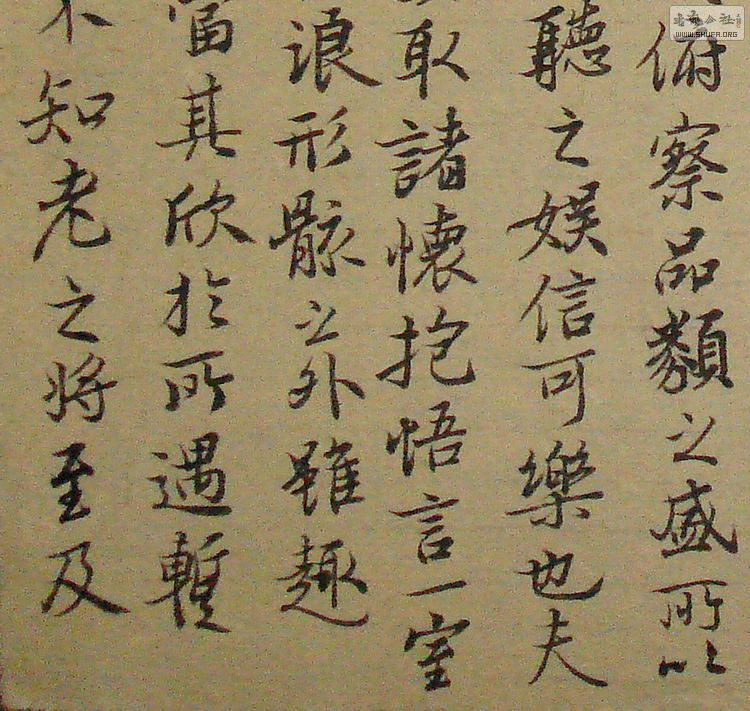 俯察品類之盛所以
聽之娛信可樂也夫
取諸懷抱悟言一室
浪形骸之外雖趣
當其欣於所遇暫
不知老之将至及
WWW.SHUFA.ORG